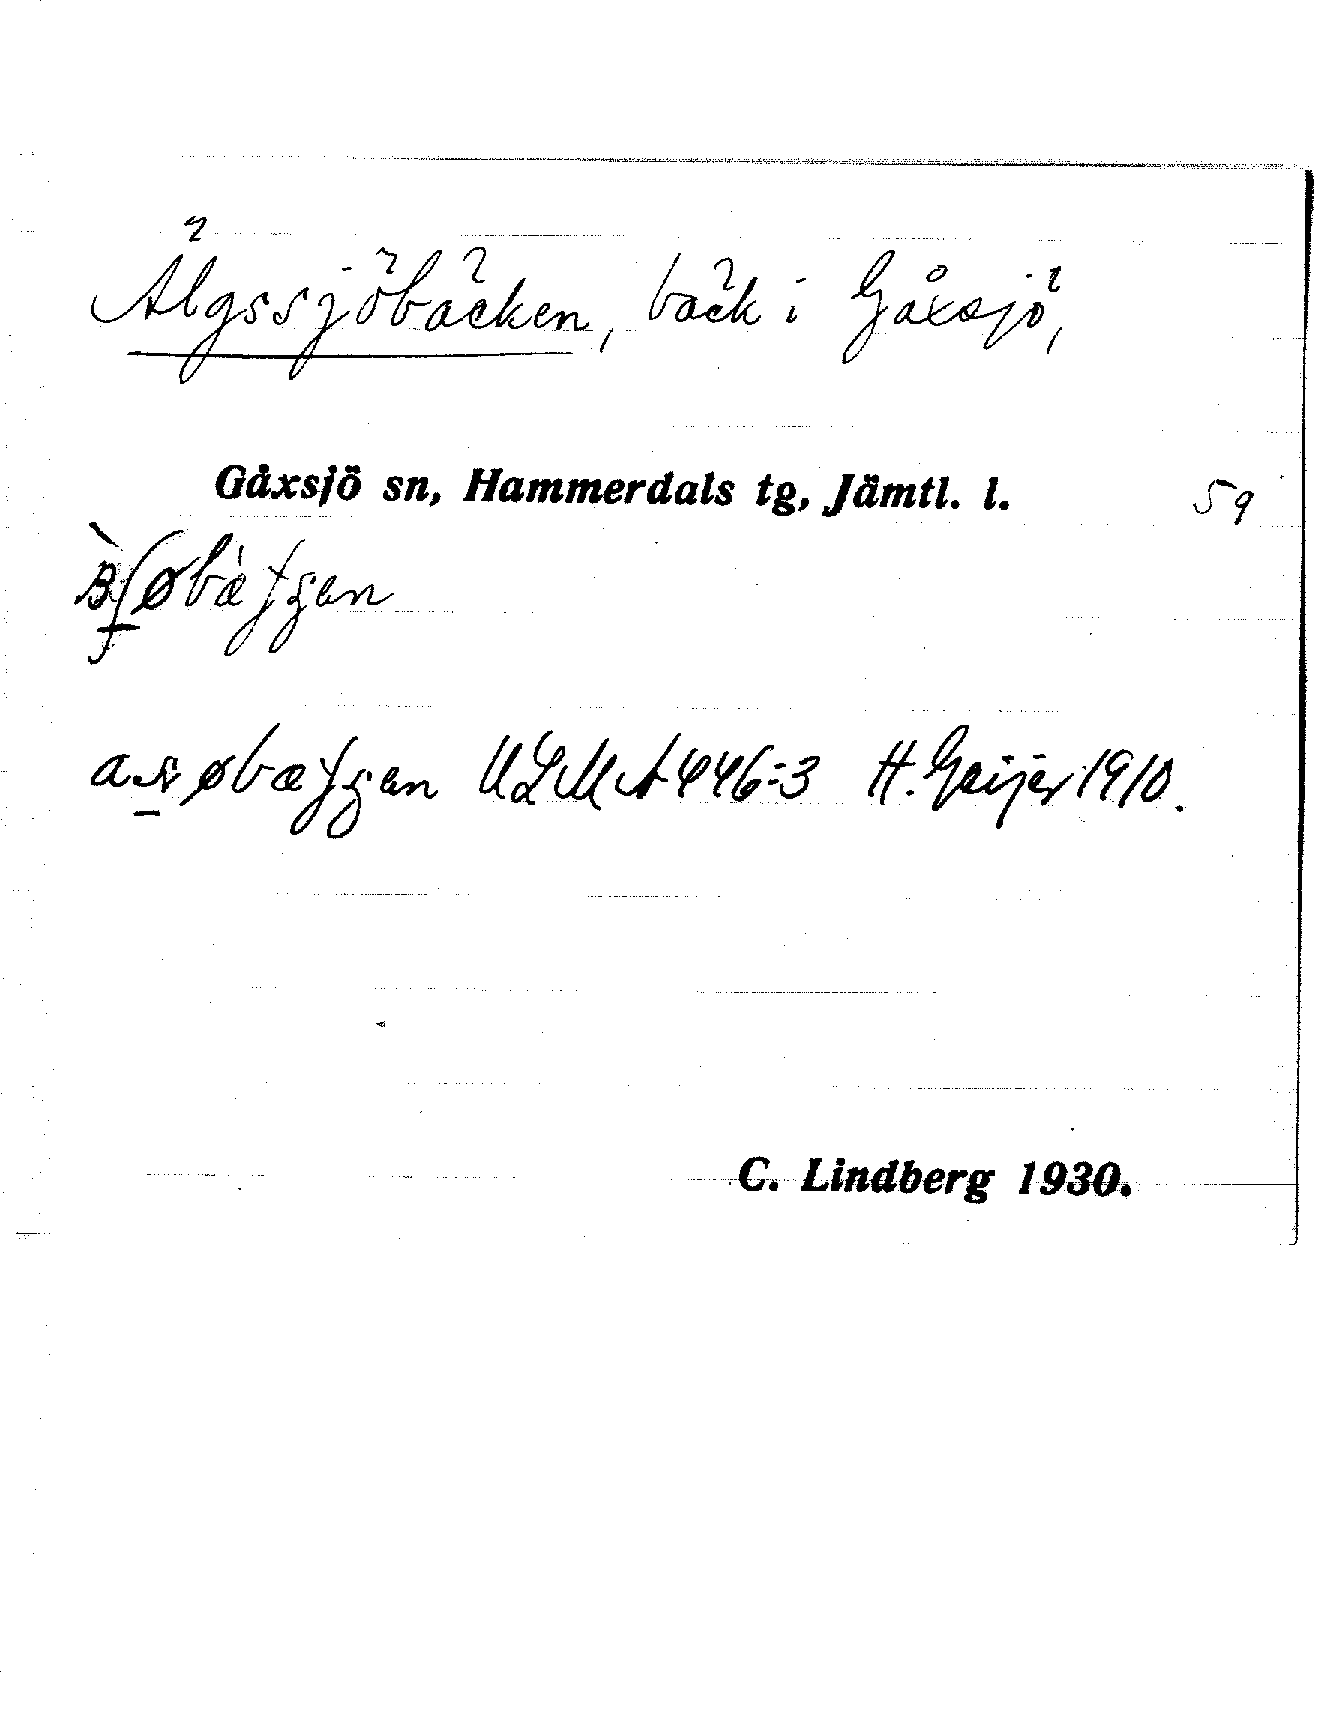 Älgssjöbäcken, bäck i Gåxsjö,
Gåxsjö sn, Hammerdals tg, Jämtl. l.
59
ULMA 446:3 H. Geijer 1910.
C. Lindberg 1930.